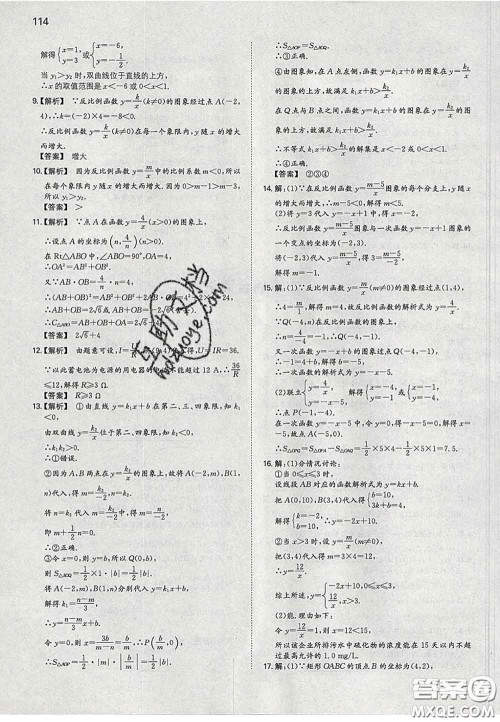 114
解得{x=1, y=3 或{x=-6, y=-1/2.
当 y₁>y₂ 时,双曲线位于直线的上方,
∴x 的取值范围是 x<-6 或 0<x<1.
9.【解析】 ∵反比例函数 y=k/x(k≠0)的图象经过点 A(-2,
4),∴k=(-2)×4=-8<0.
∴反比例函数 y=k/x(k≠0)在每个象限内,y 随 x 的增大
而增大.
【答案】 增大
10.【解析】 因为反比例函数 y=m/x 中的比例系数 m<0,所以
在每个象限内 y 随 x 的增大而增大.因为 0>-1>m-3,
所以 y₁>y₂.
【答案】 >
11.【解析】 ∵点 A 在函数 y=4/x(x>0)的图象上,
∴设点 A 的坐标为(n, 4/n)(n>0).
在 Rt△ABO 中,∠ABO=90°,OA=4,
∴OA²=AB²+OB².
又∵AB·OB=4/n·n=4,
∴(AB+OB)²=AB²+OB²+2AB·
∴AB+OB=2√6或AB+OB=-2√6
∴C△AOB=AB+OB+OA=2√6+4.
【答案】 2√6+4
12.【解析】 由题意可设,I=
∵以此蓄电池为电源的用电器的电流不能超过 12 A,∴36/R
≤12,解得 R≥3 Ω.
【答案】 R≥3 Ω
13.【解析】 ①由直线 y=k₁x+b 在第二、三、四象限,知 k₁<0,
由双曲线 y=k₂/x 位于第二、四象限,知 k₂<0,
∴k₁k₂>0.
∴①错误.
②因为 A,B 两点在 y=k₂/x 的图象上,故将 A(-2,m),B(1,
n)代入,得 m=k₂/-2,n=k₂.
将 n=k₂ 代入 m=k₂/-2 中,得 m=n/-2,
即 m+1/2n=0.
∴②正确.
③令 x=0,则 y=b,所以 Q(0,b),
则 S△AOQ=1/2×1·|b|=1/2|b|.
将 A(-2,m),B(1,n)分别代入 y=k₁x+b,
解得 k₁=n-m/3,
∴y=n-m/3 x+b.
令 y=0,则 x=3b/m-n=-b,
则 S△AOP=
∴S△AOP=S△BOQ.
∴③正确.
④由图象知,在 A 点左侧,函数 y=k₁x+b 的图象在函数
y=k₂/x 的图象上方,故此时 k₁x+b>k₂/x.
在 Q 点与 B 点之间,函数 y=k₁x+b 的图象在函数 y=k₂/x
的图象上方,故此时 k₁x+b>k₂/x.
∴不等式 k₁x+b>k₂/x 的解集是 x<-2 或 0<x<1.
∴④正确.
【答案】 ②③④
14.解:(1)∵反比例函数 y=m-5/x 图象的每个分支上,y 随 x
的增大而增大,∴m-5<0,解得 m<5.
(2)将 y=3 代入 y=-x+1 中,得 x=-2,
∴反比例函数 y=m-5/x 的图象与一次函数 y=-x+1 图象
的一个交点的坐标为(-2,3).
将(-2,3)代入 y=m-5/x,得 3=m-5/-2.
解得 m=-1.
15.解:(1)∵反比例函数 y=m/x 的图象经过点(1,4),
∴4=m/1,解得 m=4,故反比例函数的解析式为 y=4/x.
∵Q(-4,n)在反比例函数的图象上,
∴n=4/-4=-1,∴Q(-4,-1).
又∵一次函数 y=-x+b 的图象过点 Q(-4,-1),
∴-1=4+b,解得 b=-5.
∴一次函数的解析式为 y=-x-5.
(2)联立{y=4/x, y=-x-5,解得{x=-4, y=-1 或{x=-1, y=-4.
∴点 P(-1,-4).
在一次函数 y=-x-5 中,令 y=0,得 -x-5=0,
解得 x=-5,故点 A(-5,0).
∴S△OPQ=S△OPA-S△OAQ=1/2×5×4-1/2×5×1=7.5.
16.解:(1)分情况讨论:
①当 0≤x≤3 时,
设线段 AB 对应的函数解析式为 y=kx+b.
把 A(0,10),B(3,4)代入得{b=10, 3k+b=4,
解得{k=-2, b=10,
∴y=-2x+10.
②当 x>3 时,设 y=m/x,
把(3,4)代入得 m=3×4=12,
∴y=12/x.
综上所述,y={-2x+10, 0≤x≤3, 12/x, x>3.
(2)能.理由如下:
令 y=12/x=1,则 x=12<15,
所以该企业所排污水中硫化物的浓度能在 15 天以内不超过
最高允许的 1.0 mg/L.
17.解:(1)∵矩形 OABC 的顶点 B 的坐标为(4,2),
答案圈
MXQE.COM